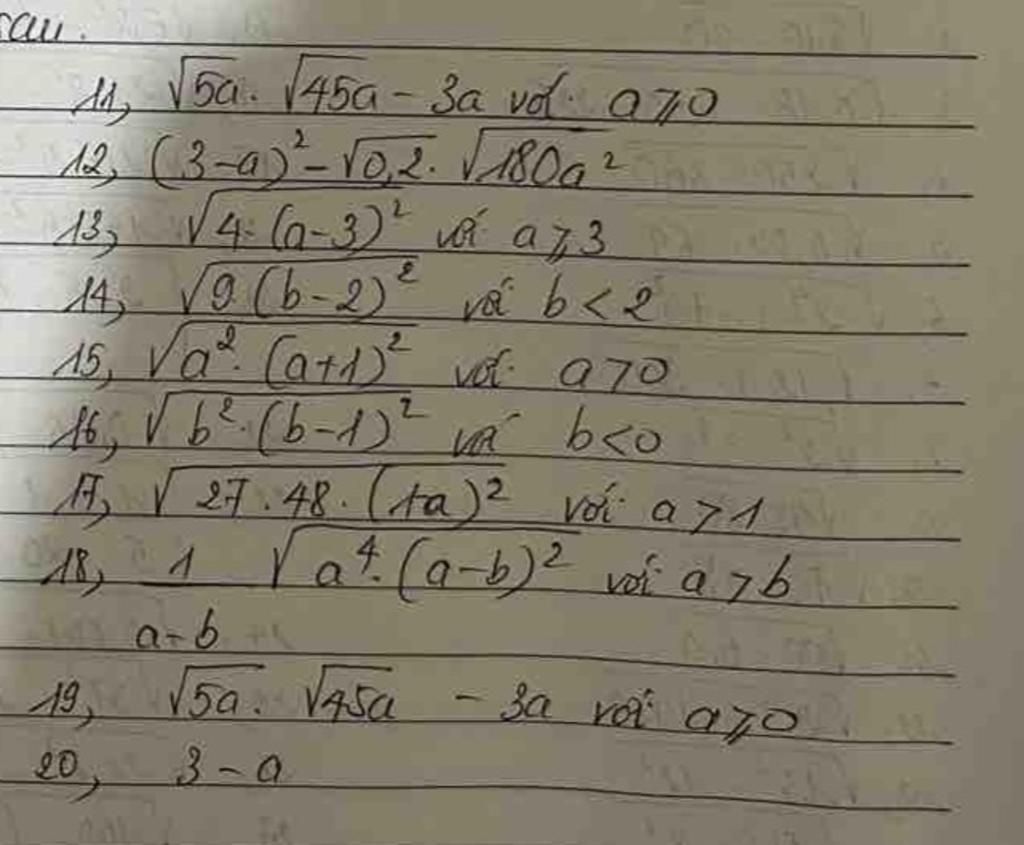 sau.
11, √5a. √45a - 3a với a ⩾ 0
12, (3-a)² - √0,2. √180a²
13, √4.(a-3)² với a ⩾ 3
14, √9.(b-2)² với b < 2
15, √a².(a+1)² với a > 0
16, √b².(b-1)² với b < 0
17, √27.48.(1-a)² với a > 1
18, 1 √a⁴.(a-b)² với a > b
a-b
19, √5a. √45a - 3a với a ⩾ 0
20, 3-a